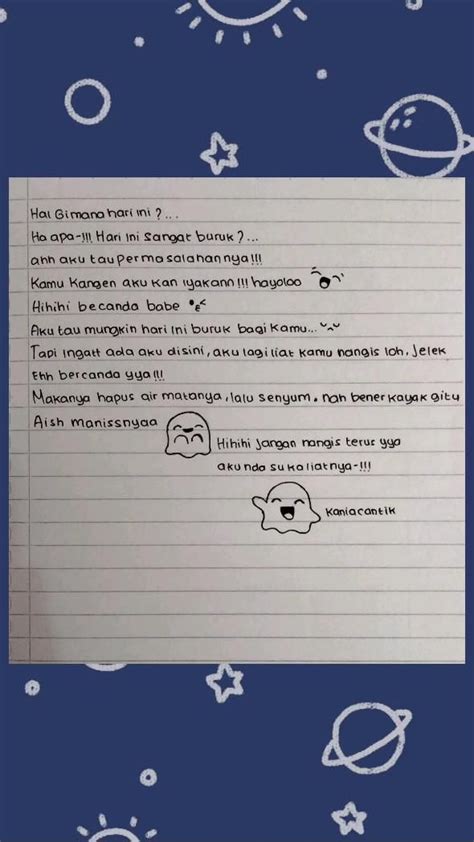 Hai Gimana hari ini ?...
Ha apa-!!! Hari ini sangat buruk ?...
ahh aku tau permasalahannya !!!
Kamu Kangen aku Kan iyakann !!! hayoloo
Hihihi becanda babe
Aku tau mungkin hari ini buruk bagi kamu...
Tapi ingatt ada aku disini, aku lagi liat kamu nangis loh, jelek
Ehh bercanda yya !!!
Makanya hapus air matanya, lalu senyum. nah bener kayak gitu
Aish manissnyaa
Hihihi jangan nangis terus yya
aku nda suka liatnya-!!!
Kaniacantik